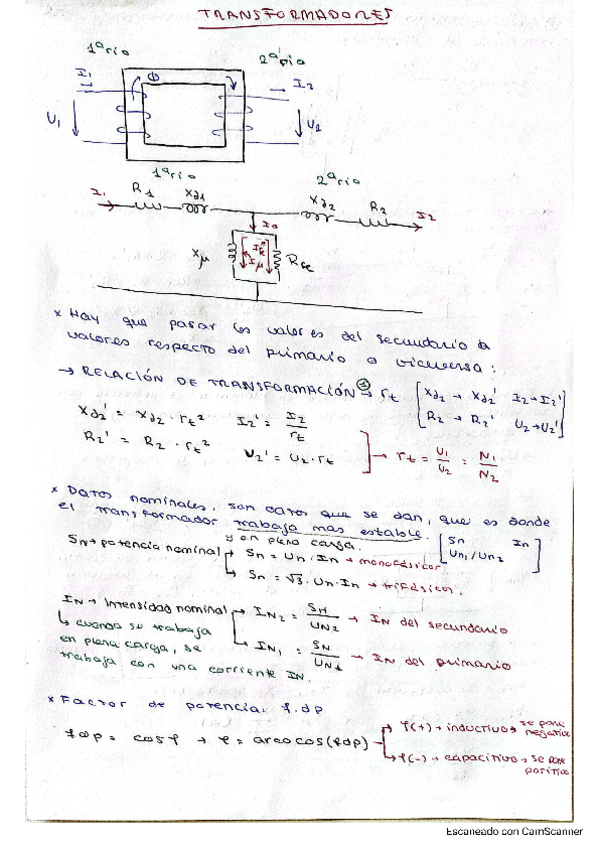 TRANSFORMADORES
1ªrio 2ªrio
I1 Φ I2
U1 U2
1ªrio 2ªrio
I1 R1 Xd1 Xd2 R2 I2
I0
Xμ Iμ Rfe
* Hay que pasar los valores del secundario a
valores respecto del primario o viceversa:
→ RELACIÓN DE TRANSFORMACIÓN → rt [Xd2 → Xd2' I2 → I2'
R2 → R2' U2 → U2']
Xd2' = Xd2 · rt² I2' = I2/rt
R2' = R2 · rt² U2' = U2 · rt ] → rt = U1/U2 = N1/N2
* Datos nominales, son datos que se dan, que es donde
el transformador trabaja mas estable. [Sn In
y en plena carga. Un1/Un2]
SN → potencia nominal → Sn = Un · In → monofásicos
→ Sn = √3 · Un · In → trifásicos.
IN → Intensidad nominal → IN2 = SN/UN2 → IN del secundario
↳ cuando se trabaja
en plena carga, se → IN1 = SN/UN1 → IN del primario
trabaja con una corriente IN.
* Factor de potencia: f.dp
fdp = cosφ → φ = arcocos(fdp) → φ(+) → inductivo → se pone negativo
→ φ(-) → capacitivo → se pone positivo
Escaneado con CamScanner